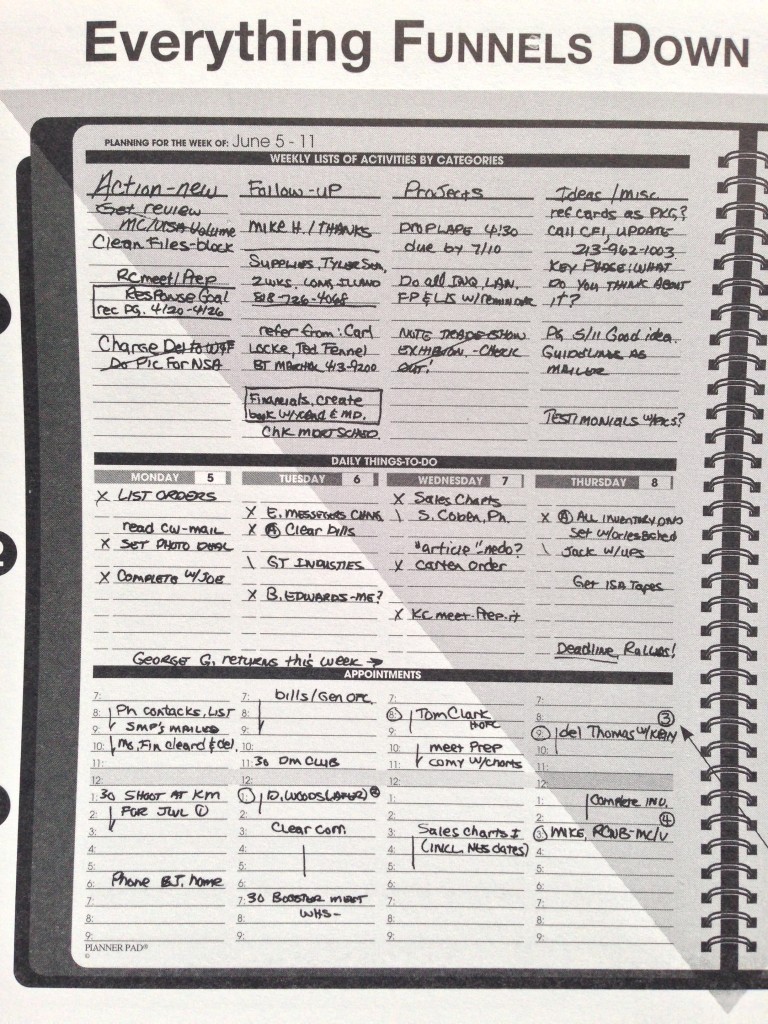 Everything FUNNELS DOWN
PLANNING FOR THE WEEK OF: June 5 - 11
WEEKLY LISTS OF ACTIVITIES BY CATEGORIES
Action-new
Get review
MC/VISA Volume
Clean Files-block
RC meet/Prep
Response Goal
rec pg. 4/20-4/26
Charge Del to
Do Pic For NSA
Follow-up
Mike H. / THANKS
Supplies, Tyler
2 wks. Long Island
818-726-4068
refer from: Carl
Locke, Ted Fennel
413-9200
Financials, create
book & MD.
Chk
Projects
4:30
due by 7/10
Do all INQ, LAN,
NOTE TRADE-SHOW
EXHIBITION - CHECK
OUT!
Ideas / misc.
ref cards as PKG?
Call CFI, UPDATE
213-962-1003
KEY PHASE: WHAT
DO YOU THINK ABOUT
it?
PG 5/11 Good idea.
GUIDELINE AS
MAILER
TESTIMONIALS
DAILY THINGS-TO-DO
MONDAY 5
X LIST ORDERS
read CW-MAIL
X SET PHOTO
X COMPLETE W/JOE
TUESDAY 6
X E.
X Ⓐ Clear bills
\ GT INDUSTIES
X B. EDWARDS-ME?
WEDNESDAY 7
X Sales Charts
\ S. Coben, Ph.
"article" nedo?
X Carter order
X KC meet-Prep it
THURSDAY 8
X Ⓐ ALL INVENTORY
Set
\ Jack w/UPS
Get ISA Tapes
Deadline,
GEORGE G, returns this week →
APPOINTMENTS
7:
8: Ph contacks, LIST
9: SMP's MAILED
10: cleard & del
11:
12:
1:30 SHOOT AT KM
2: FOR JWL ①
3:
4:
5:
6: Phone BJ, home
7:
8:
9:
7: bills/Gen OFC
8:
9:
10:
11:30 DM CLUB
12:
1: D, WOODS ②
2:
3: Clear Com
4:
5:
6:
7:30 BOOSTER MEET
8: WHS-
9:
7:
8: Tom Clark
9:
10: meet Prep
11: w/charts
12:
1:
2:
3: Sales charts
4: (INCL. dates)
5:
6:
7:
8:
9:
7:
8: ③
9: del Thomas w/
10:
11:
12:
1: Complete INV.
2: ④
3: MIKE, MC/V
4:
5:
6:
7:
8:
9:
PLANNER PAD®
©